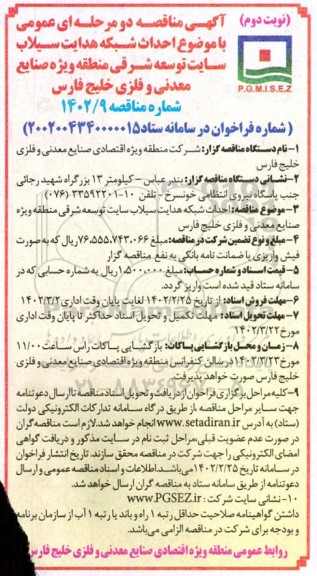 (نوبت دوم)
آگهی مناقصه دو مرحله ای عمومی
با موضوع احداث شبکه هدایت سیلاب
سایت توسعه شرقی منطقه ویژه صنایع
معدنی و فلزی خلیج فارس
P.G.M.I.S.E.Z
شماره مناقصه ۱۴۰۲/۹
( شماره فراخوان در سامانه ستاد ۲۰۰۲۰۰۴۳۴۰۰۰۰۰۱۵)
۱-نام دستگاه مناقصه گزار: شرکت منطقه ویژه اقتصادی صنایع معدنی و فلزی
خلیج فارس
۲-نشانی دستگاه مناقصه گزار: بندر عباس - کیلومتر ۱۳ بزرگراه شهید رجائی
جنب پاسگاه نیروی انتظامی خونسرخ - تلفن ۱۰-۳۳۵۹۲۲۰۱ (۰۷۶)
۳-موضوع مناقصه: احداث شبکه هدایت سیلاب سایت توسعه شرقی منطقه ویژه
صنایع معدنی و فلزی خلیج فارس
۴-مبلغ و نوع تضمین شرکت در مناقصه: مبلغ ۷۶،۵۵۵،۷۴۳،۰۶۶ ریال که به صورت
فیش واریزی یا ضمانت نامه بانکی به نفع مناقصه گزار
۵-قیمت اسناد و شماره حساب: مبلغ ۱،۵۰۰،۰۰۰ ریال به شماره حسابی که در
سامانه ستاد قید شده است واریز گردد.
۶-مهلت فروش اسناد: از تاریخ ۱۴۰۲/۲/۲۵ لغایت پایان وقت اداری ۱۴۰۲/۳/۲
۷-مهلت تحویل اسناد: مهلت تکمیل و تحویل اسناد حداکثر تا پایان وقت اداری
مورخ ۱۴۰۲/۳/۲۲
۸-زمان و محل بازگشایی پاکات: بازگشایی پاکات راس ساعت ۱۱/۰۰
مورخ ۱۴۰۲/۳/۲۳ در سالن کنفرانس منطقه ویژه اقتصادی صنایع معدنی و فلزی
خلیج فارس صورت خواهد پذیرفت.
۹-کلیه مراحل برگزاری فراخوان از دریافت و تحویل اسناد مناقصه تا ارسال دعوتنامه
جهت سایر مراحل مناقصه، از طریق درگاه سامانه تدارکات الکترونیکی دولت
(ستاد) به آدرس www.setadiran.ir انجام خواهد شد. لازم است مناقصه گران
در صورت عدم عضویت قبلی، مراحل ثبت نام در سایت مذکور و دریافت گواهی
امضای الکترونیکی را جهت شرکت در مناقصه محقق سازند. تاریخ انتشار فراخوان
در سامانه تاریخ ۱۴۰۲/۲/۲۵ می باشد. اطلاعات و اسناد مناقصه عمومی و ارسال
دعوتنامه از طریق سامانه ستاد به مناقصه گران ارسال خواهد شد.
۱۰-نشانی سایت شرکت: www.PGSEZ.ir
داشتن گواهینامه صلاحیت حداقل رتبه ۱ راه و باند یا رتبه ۱ آب از سازمان برنامه
و بودجه برای شرکت در مناقصه الزامی می باشد.
روابط عمومی منطقه ویژه اقتصادی صنایع معدنی و فلزی خلیج فارس